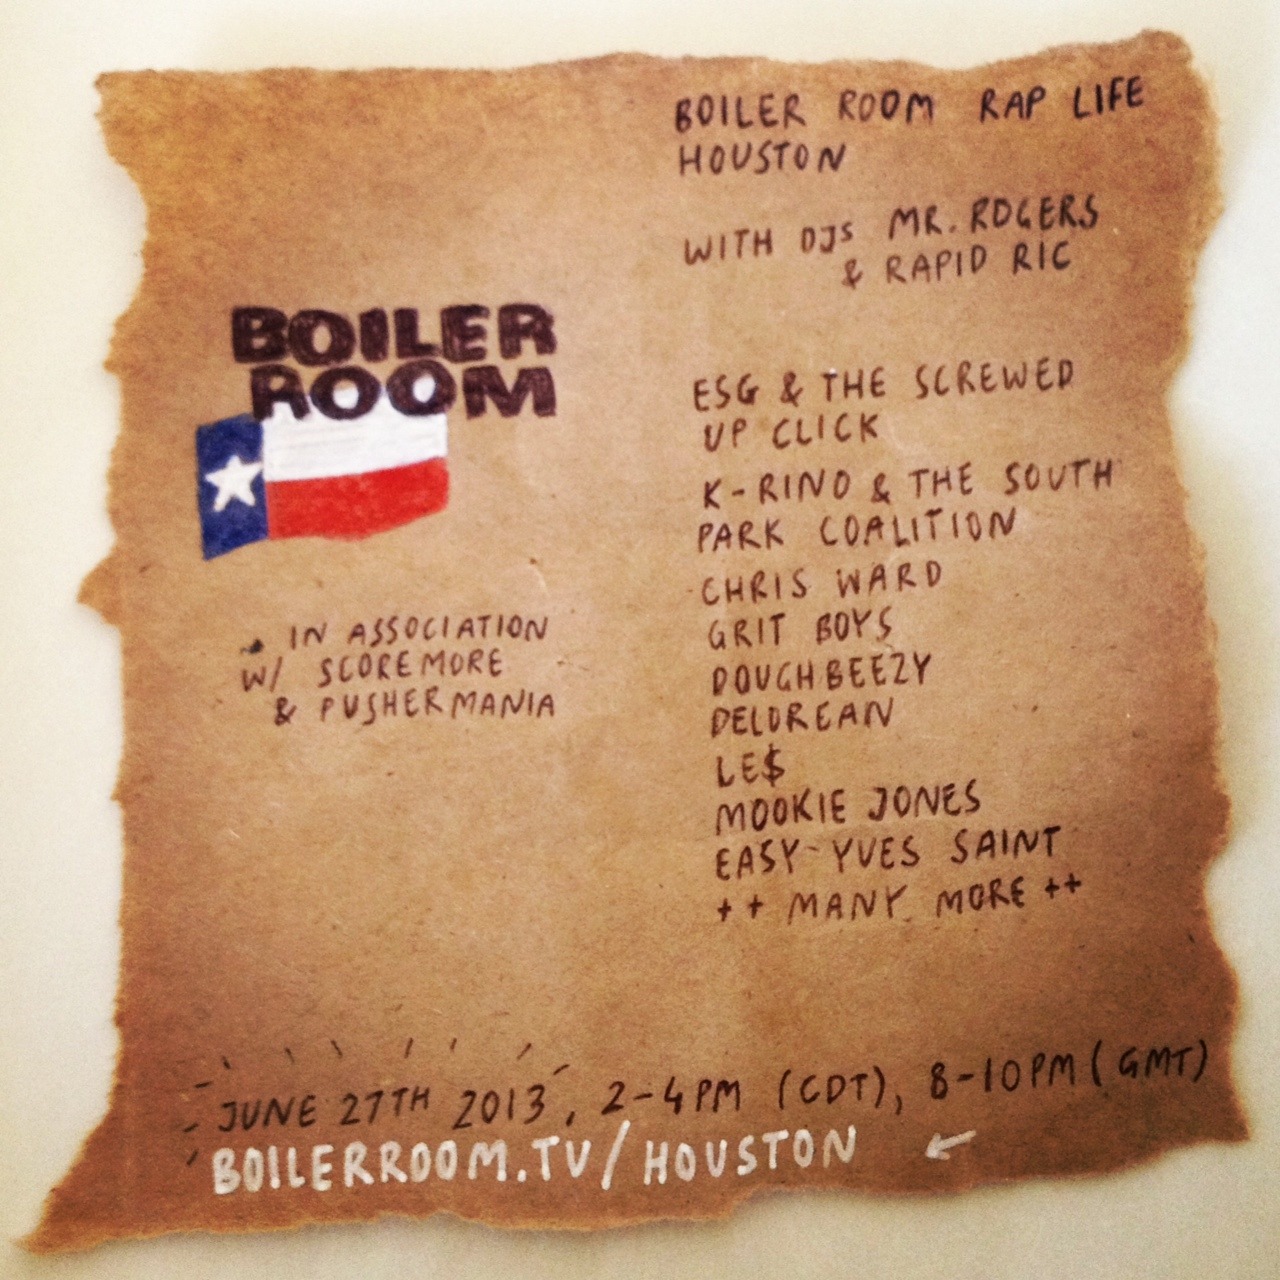 BOILER ROOM RAP LIFE
HOUSTON
WITH DJs MR. ROGERS
& RAPID RIC
BOILER
ROOM
IN ASSOCIATION
W/ SCOREMORE
& PUSHERMANIA
ESG & THE SCREWED
UP CLICK
K-RINO & THE SOUTH
PARK COALITION
CHRIS WARD
GRIT BOYS
DOUGHBEEZY
DELOREAN
LE$
MOOKIE JONES
EASY-YVES SAINT
++ MANY MORE ++
JUNE 27TH 2013, 2-4PM (CDT), 8-10PM (GMT)
BOILERROOM.TV/HOUSTON ←